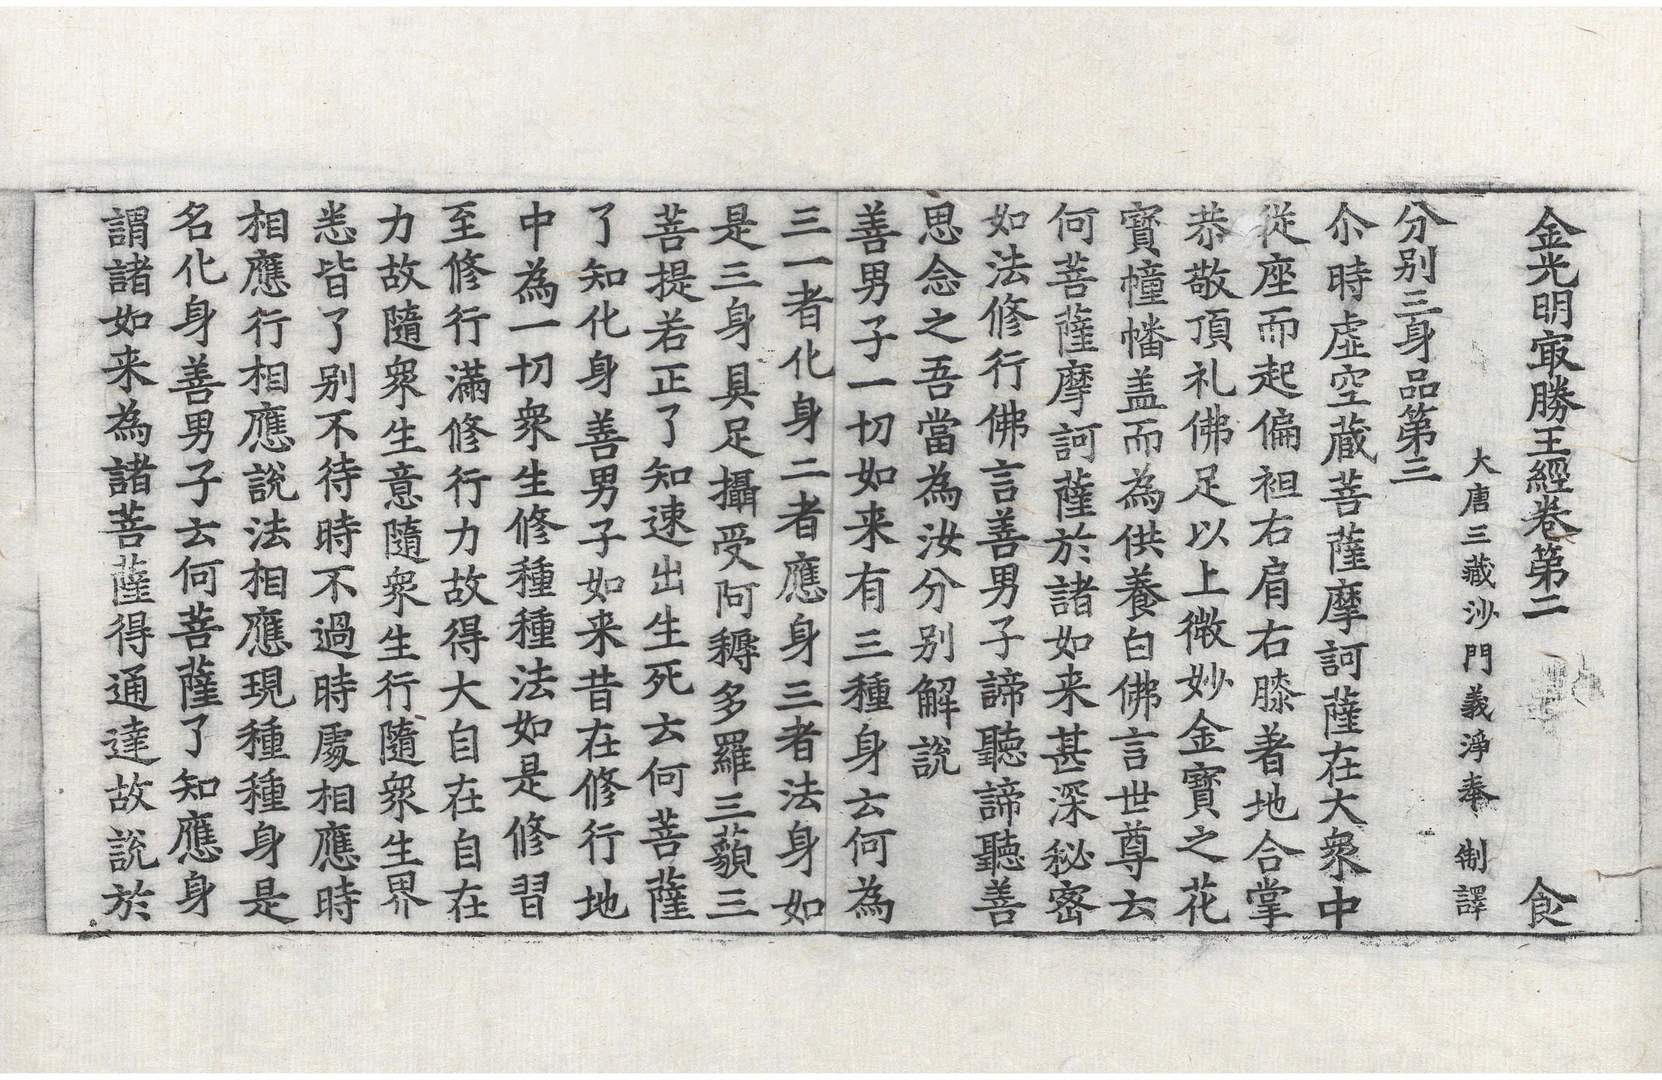 金光明㝡勝王經卷第二　食
大唐三藏沙門義淨奉　制譯
分别三身品第三
尒時虛空藏菩薩摩訶薩在大衆中
從座而起偏袒右肩右膝著地合掌
恭敬頂礼佛足以上微妙金寶之花
寶幢幡盖而為供養白佛言世尊云
何菩薩摩訶薩於諸如来甚深秘密
如法修行佛言善男子諦聽諦聽善
思念之吾當為汝分别解說
善男子一切如来有三種身云何為
三一者化身二者應身三者法身如
是三身具足攝受阿耨多羅三藐三
菩提若正了知速出生死云何菩薩
了知化身善男子如来昔在修行地
中為一切衆生修種種法如是修習
至修行滿修行力故得大自在自在
力故隨衆生意隨衆生行隨衆生界
悉皆了别不待時不過時處相應時
相應行相應說法相應現種種身是
名化身善男子云何菩薩了知應身
謂諸如来為諸菩薩得通達故說於